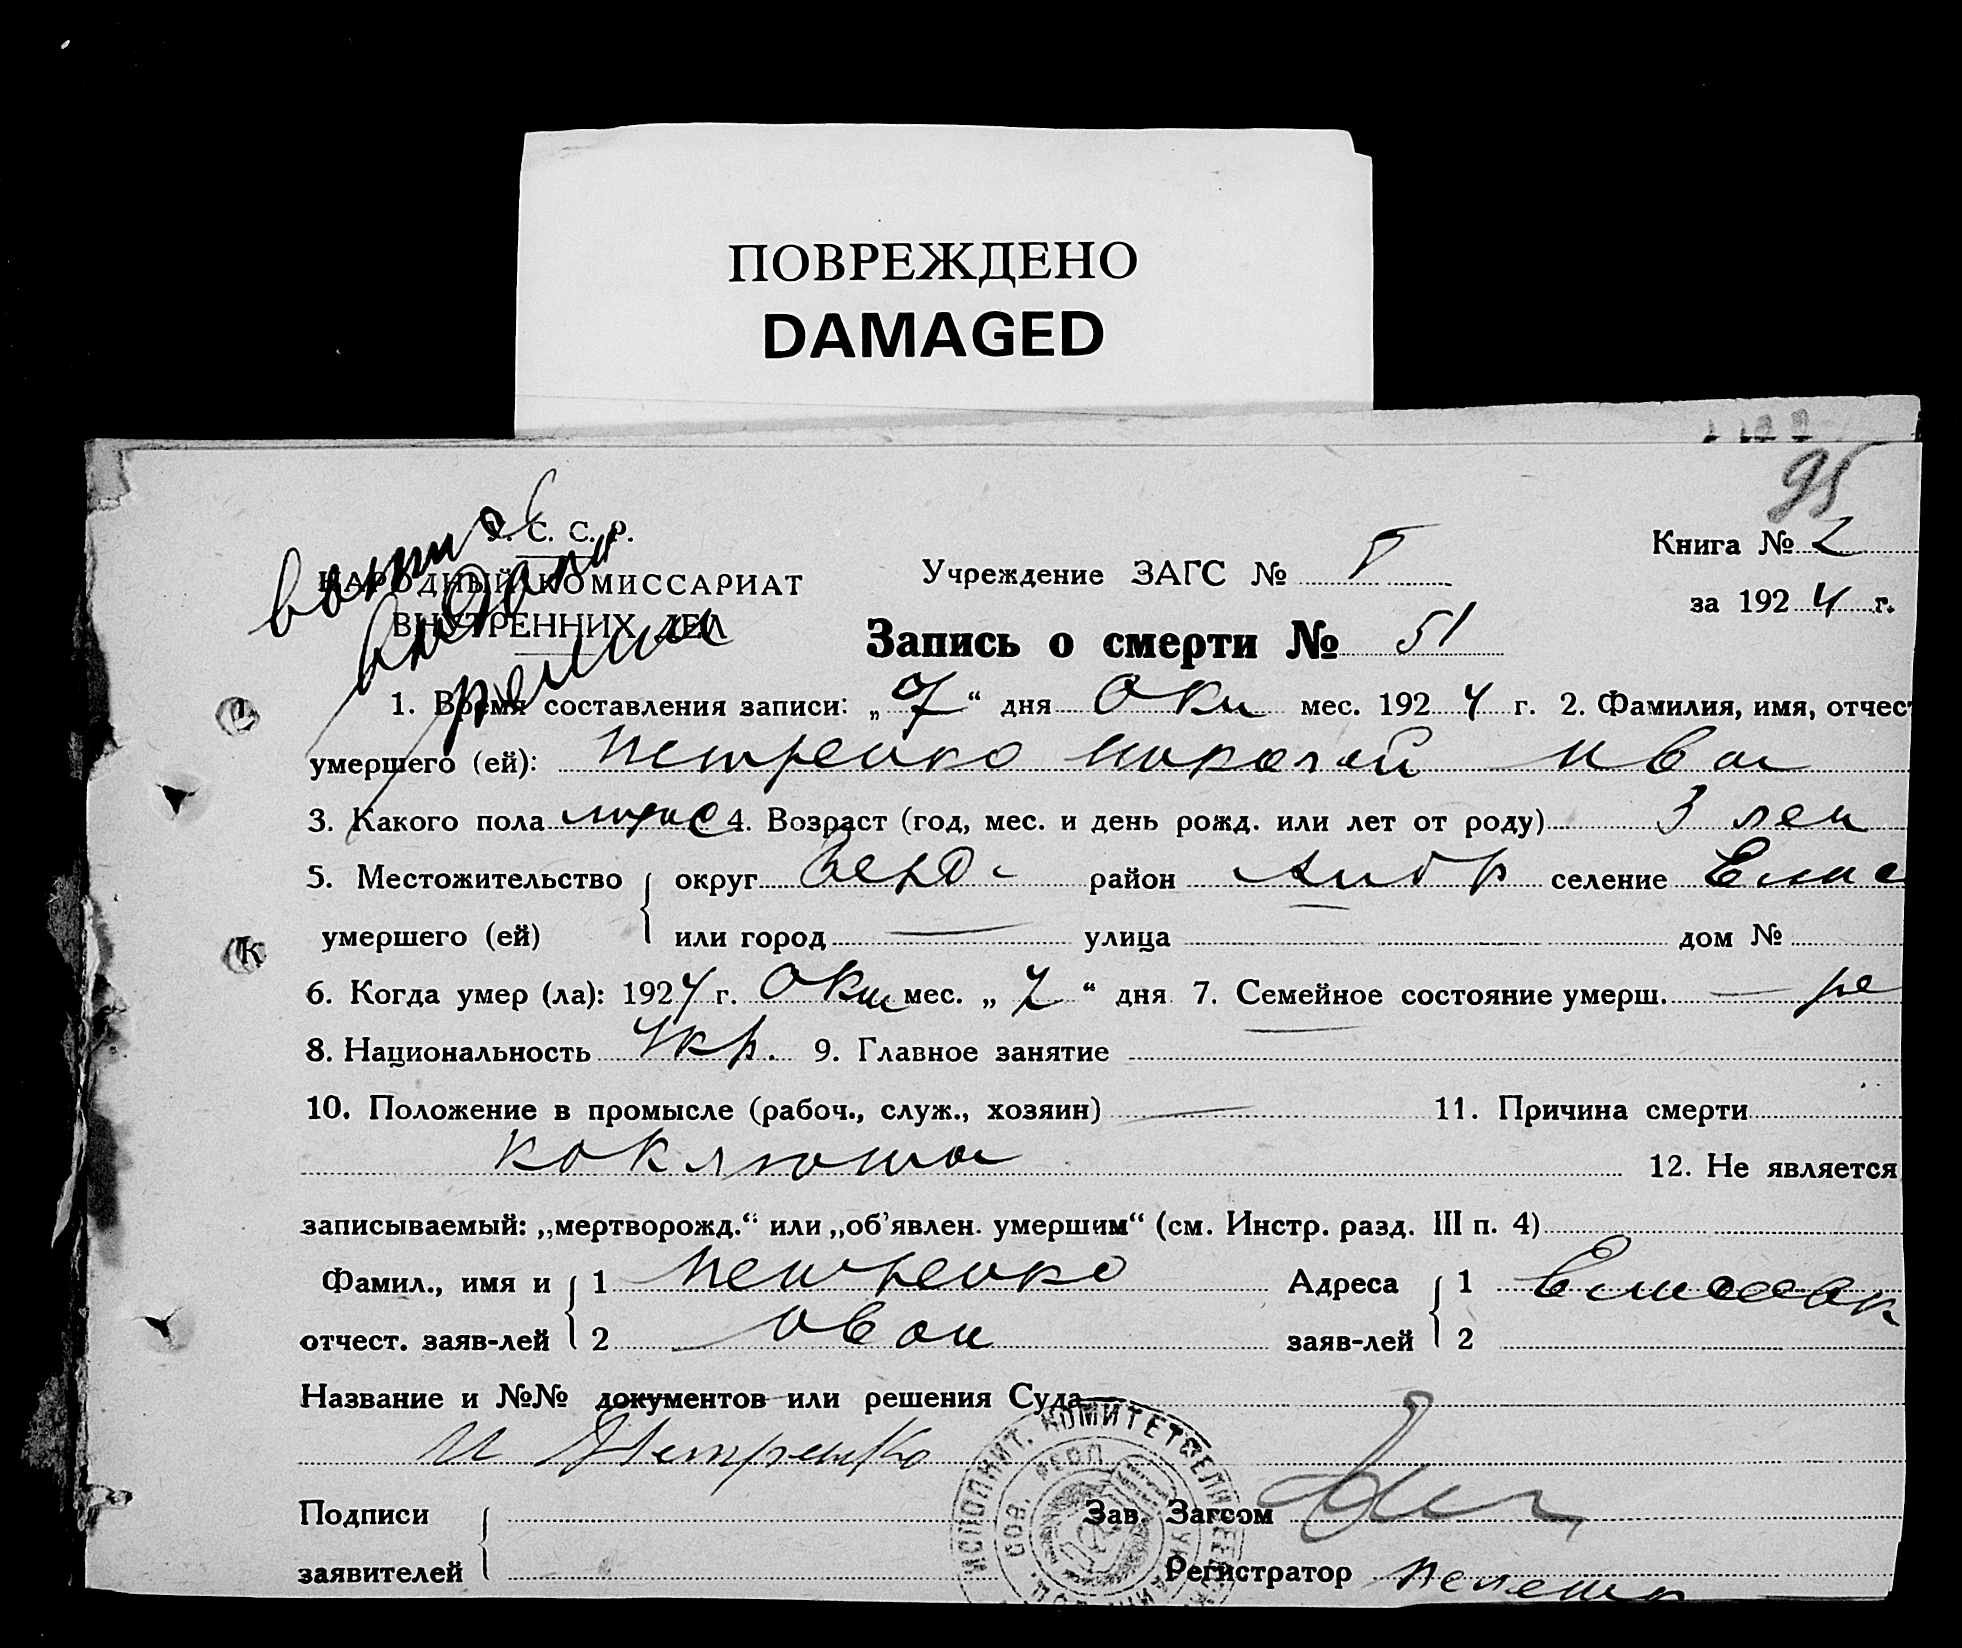 ПОВРЕЖДЕНО
DAMAGED
95
У. С. С. Р.
НАРОДНЫЙ КОМИССАРИАТ
ВНУТРЕННИХ ДЕЛ
Учреждение ЗАГС №
Книга № 2
за 1924 г.
Запись о смерти № 51
1. Время составления записи: „7“ дня Окт мес. 1924 г. 2. Фамилия, имя, отчест
умершего (ей): Петренко Николай Иван
3. Какого пола муж 4. Возраст (год, мес. и день рожд. или лет от роду) 3 лет
5. Местожительство округ Берд район селение Елис
умершего (ей) или город — улица дом №
6. Когда умер (ла): 1924 г. Окт мес. „7“ дня 7. Семейное состояние умерш. — ре
8. Национальность Укр. 9. Главное занятие —
10. Положение в промысле (рабоч., служ., хозяин) — 11. Причина смерти
коклюша 12. Не является
записываемый: „мертворожд.“ или „об’явлен. умершим“ (см. Инстр. разд. III п. 4)
Фамил., имя и 1 Петренко Адреса 1
отчест. заяв-лей 2 Иван заяв-лей 2
Название и №№ документов или решения Суда
И Петренко
Подписи Зав. Загсом
заявителей Регистратор
ИСПОЛНИТ. КОМИТЕТ